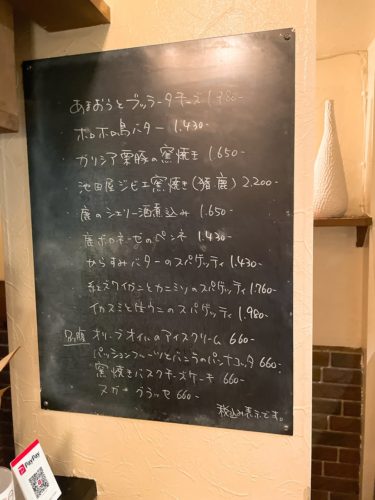 あまおうとブッラータチーズ 1.980-
ホロホロ鳥バター 1.430-
ガリシア栗豚の窯焼き 1.650-
池田屋ジビエ窯焼き(猪.鹿) 2.200-
鹿のシェリー酒煮込み 1.650-
鹿ボロネーゼのペンネ 1.430-
からすみバターのスパゲッティ 1.430-
紅ズワイガニとカニミソのスパゲッティ 1.760-
イカスミと生ウニのスパゲッティ 1.980-
別腹 オリーブオイルのアイスクリーム 660-
パッションフルーツとバニラのパンナコッタ 660-
窯焼きバスクチーズケーキ 660-
660-
税込み表示です。
PayPay